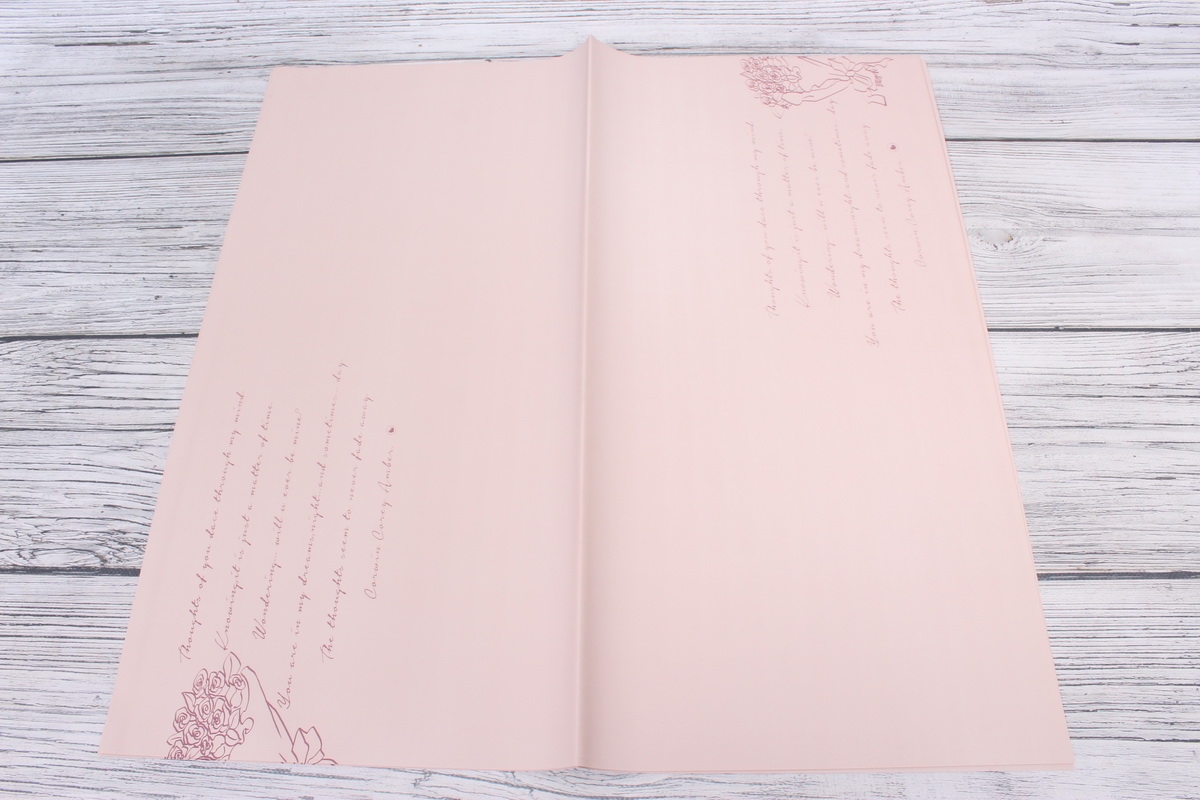 Thoughts of you dare through my mind
Knowing it is just a matter of time
Wondering will u ever be mine?
You are in my dreams, night and sometimes day
The thoughts seem to never fade away
Corwin Corey Amber
Thoughts of you dare through my mind
Knowing it is just a matter of time
Wondering will u ever be mine
You are in my dreams, night and sometimes day
The thoughts seem to never fade away
Corwin Corey Amber